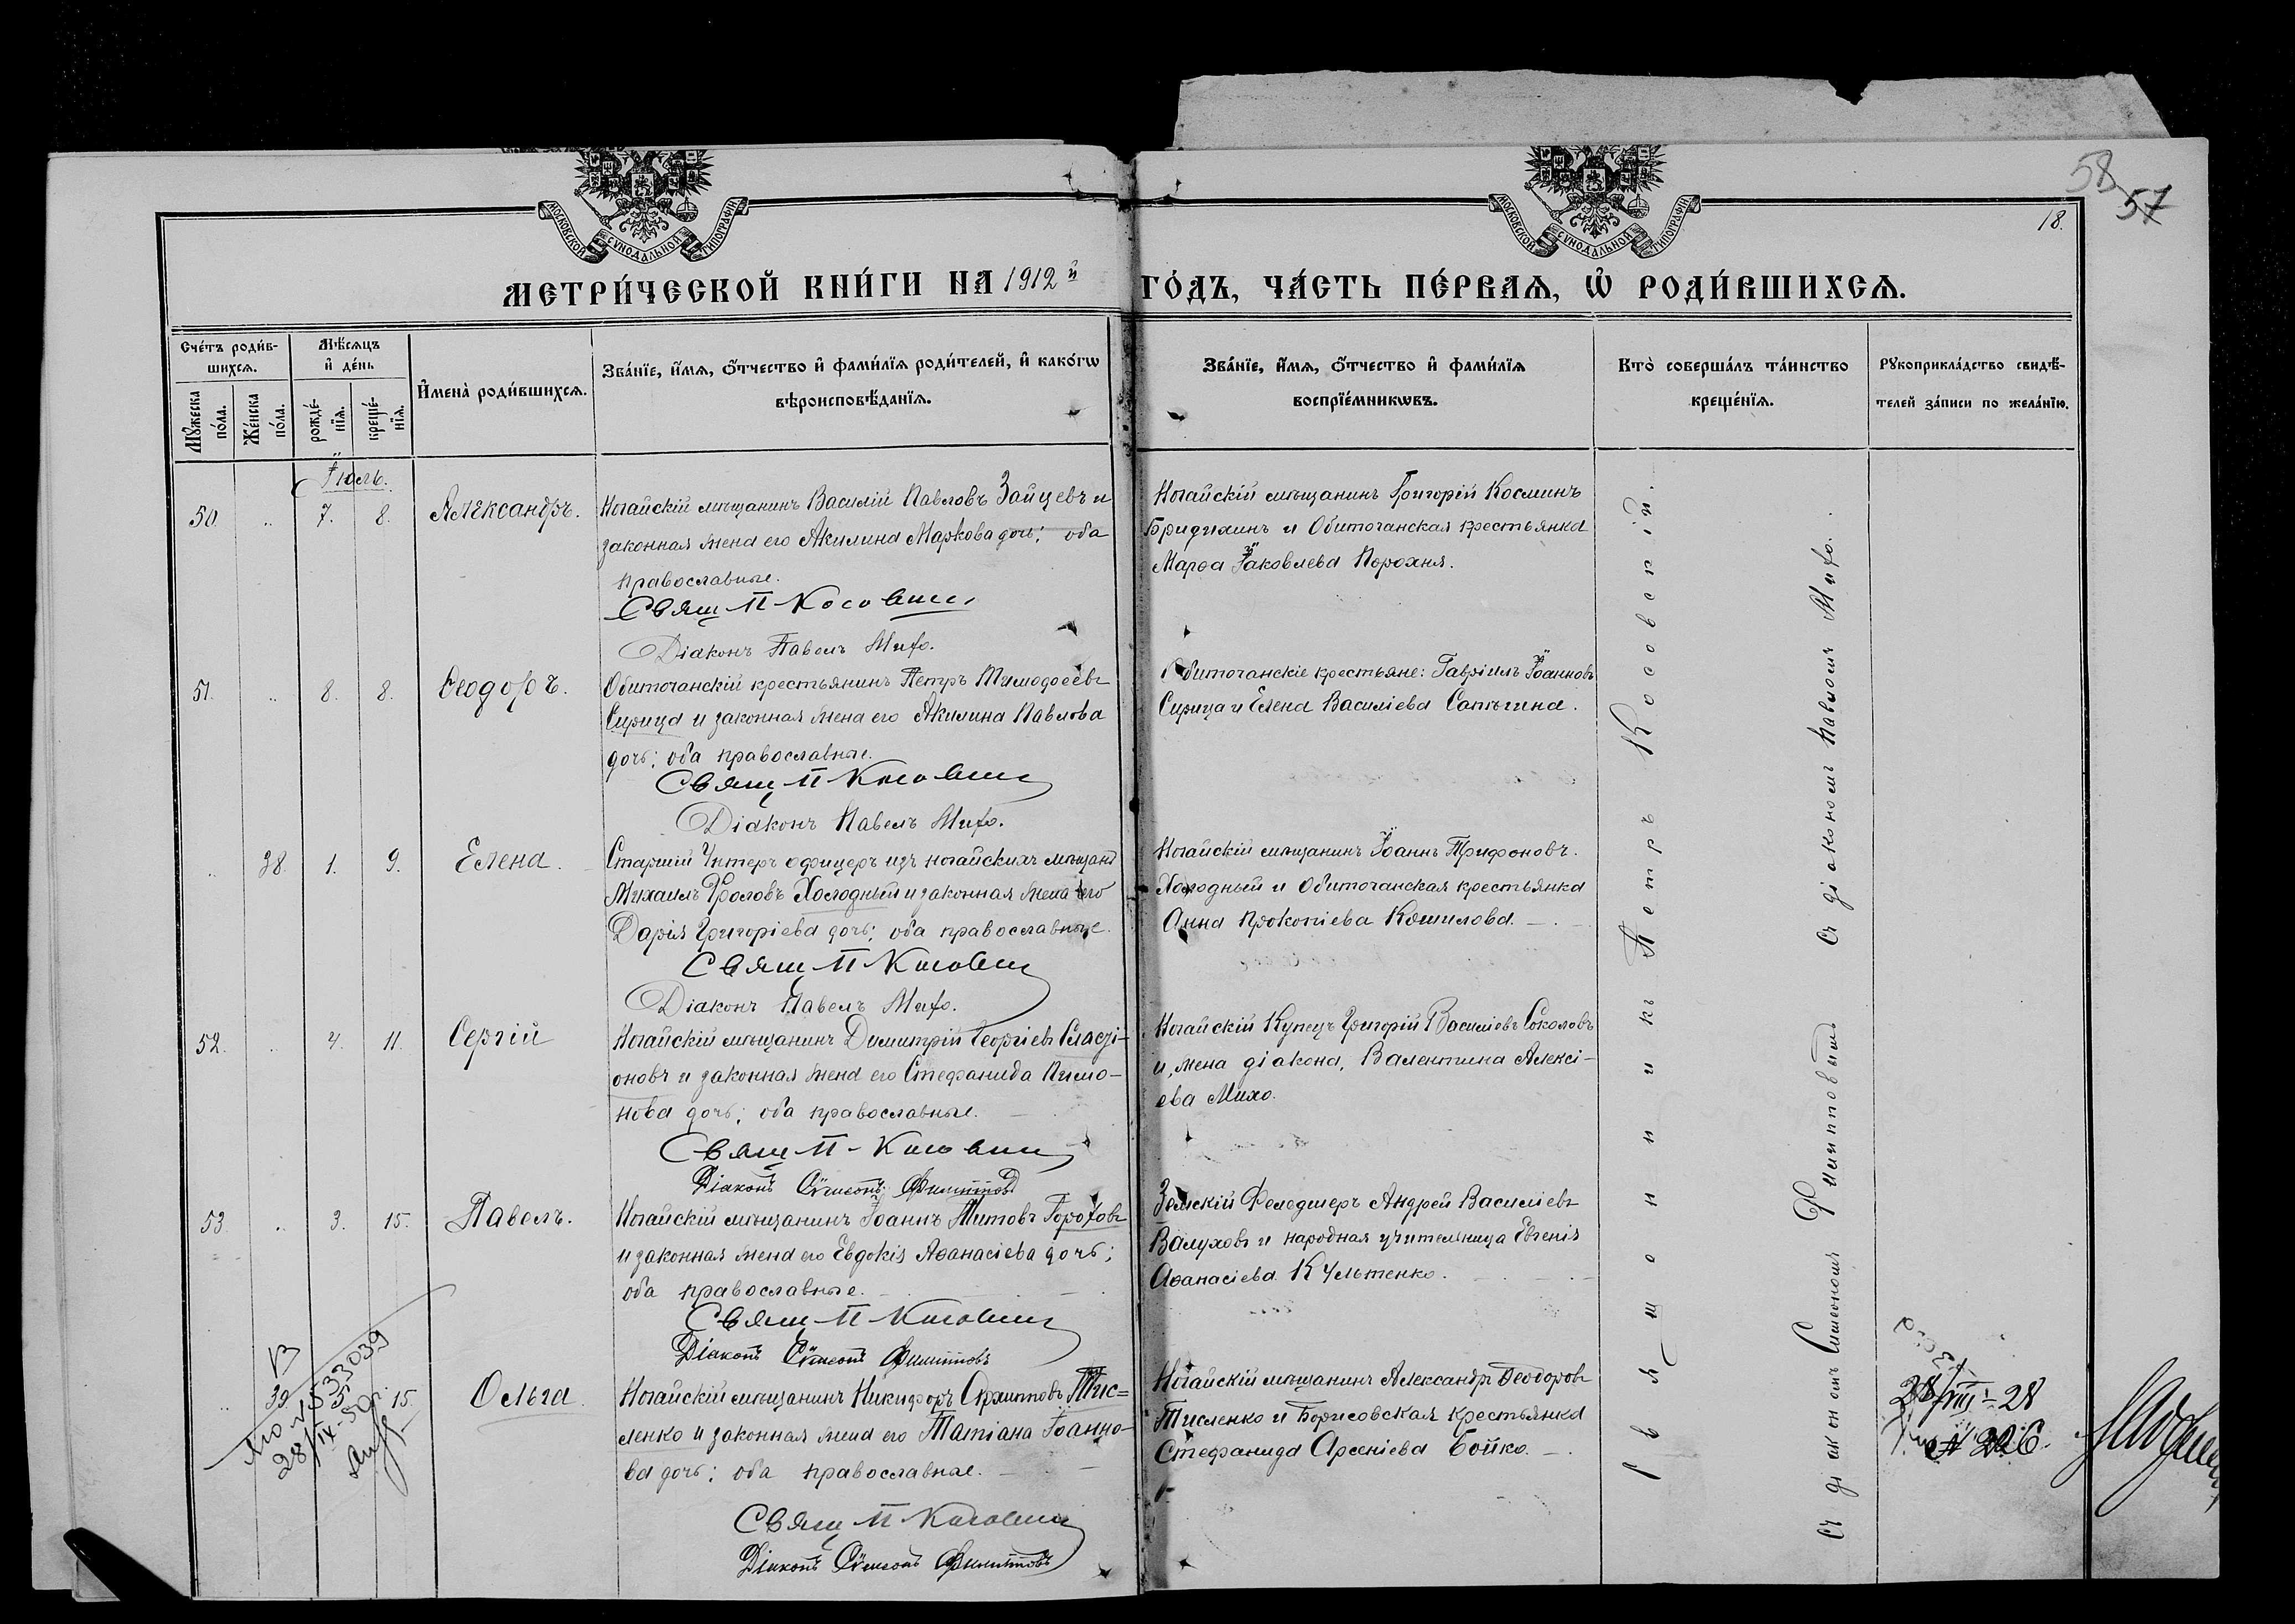 58
57
18.
МОСКОВСКОЙ СУНОДАЛЬНОЙ ТИПОГРАФІИ
МОСКОВСКОЙ СУНОДАЛЬНОЙ ТИПОГРАФІИ
МЕТРИ́ЧЕСКОЙ КНИ́ГИ НА 1912й ГО́ДЪ, ЧА́СТЬ ПЕ́РВАѦ, Ѡ҆ РОДИ́ВШИХСѦ.
Сче́тъ роди́в-
шихсѧ.
Мꙋ́жеска по́ла.
Же́нска по́ла.
Мѣ́сѧцъ
и҆ де́нь
рожде́-
нїѧ.
креще́-
нїѧ.
И҆мена̀ роди́вшихсѧ.
Зва́нїе, и҆́мѧ, ѻ҆́тчество и҆ фами́лїѧ роди́телей, и҆ како́гѡ
вѣроисповѣ́данїѧ.
Зва́нїе, и҆́мѧ, ѻ҆́тчество и҆ фами́лїѧ
воспрїе́мникѡвъ.
Кто̀ соверша́лъ та́инство
креще́нїѧ.
Рꙋкоприкла́дство свидѣ́-
телей за́писи по жела́нїю.
Іюль.
50. .. 7. 8. Александръ.
Ногайскій мѣщанинъ Василій Павловъ Зайцевъ и
законная жена его Акилина Маркова дочь; оба
православные.
Свящ П Косовски
Діаконъ Павелъ Михо.
Ногайскій мѣщанинъ Григорій Косминъ
Бридихинъ и Обиточанская крестьянка
Марѳа Іаковлева Порохня.
51. .. 8. 8. Ѳеодоръ.
Обиточанскій крестьянинъ Петръ Тимоѳеевъ
Сирица и законная жена его Акилина Павлова
дочь; оба православные.
Свящ П Косовски
Діаконъ Павелъ Михо.
Обиточанскіе крестьяне: Гавріилъ Іоанновъ
Сирица и Елена Василіева Сапыгина.
.. 38. 1. 9. Елена.
Старшій Унтеръ офицеръ изъ ногайскихъ мѣщанъ
Михаилъ Фроловъ Холодный и законная жена его
Дарія Григоріева дочь; оба православные.
Свящ П Косовски
Діаконъ Павелъ Михо.
Ногайскій мѣщанинъ Іоаннъ Трифоновъ.
Холодный и Обиточанская крестьянка
Анна Прокопіева Кошилова.
52. .. 4. 11. Сергій
Ногайскій мѣщанинъ Димитрій Георгіевъ
оновъ и законная жена его Стефанида Пимо-
нова дочь; оба православные.
Свящ П Косовски
Діаконъ Сѵмеонъ Филипповъ
Ногайскій Купецъ Григорій Василіевъ Соколовъ
и, жена діакона, Валентина Алексі-
ева Михо.
53. .. 3. 15. Павелъ.
Ногайскій мѣщанинъ Іоаннъ Титовъ Гороховъ
и законная жена его Евдокія Аѳанасіева дочь;
оба православные.
Свящ П Косовски
Діаконъ Сѵмеонъ Филипповъ
Земскій Фелдшеръ Андрей Василіевъ
Валуховъ и народная учительница Евгенія
Аѳанасіева Культенко.
.. 39. 5. 15. Ольга.
Ногайскій мѣщанинъ Никифоръ Филипповъ Тис=
ленко и законная жена его Татіана Іоанно-
ва дочь; оба православные.
Свящ П Косовски
Діаконъ Сѵмеонъ Филипповъ
Ногайскій мѣщанинъ Александръ Ѳеодоровъ
Тисленко и Борисовская крестьянка
Стефанида Арсеніева Бойко.
Священникъ Петръ Косовскій.
Съ діакономъ Павломъ Михо.
Съ діакономъ Симеономъ Филипповымъ
28/VIII-28
№ 206.